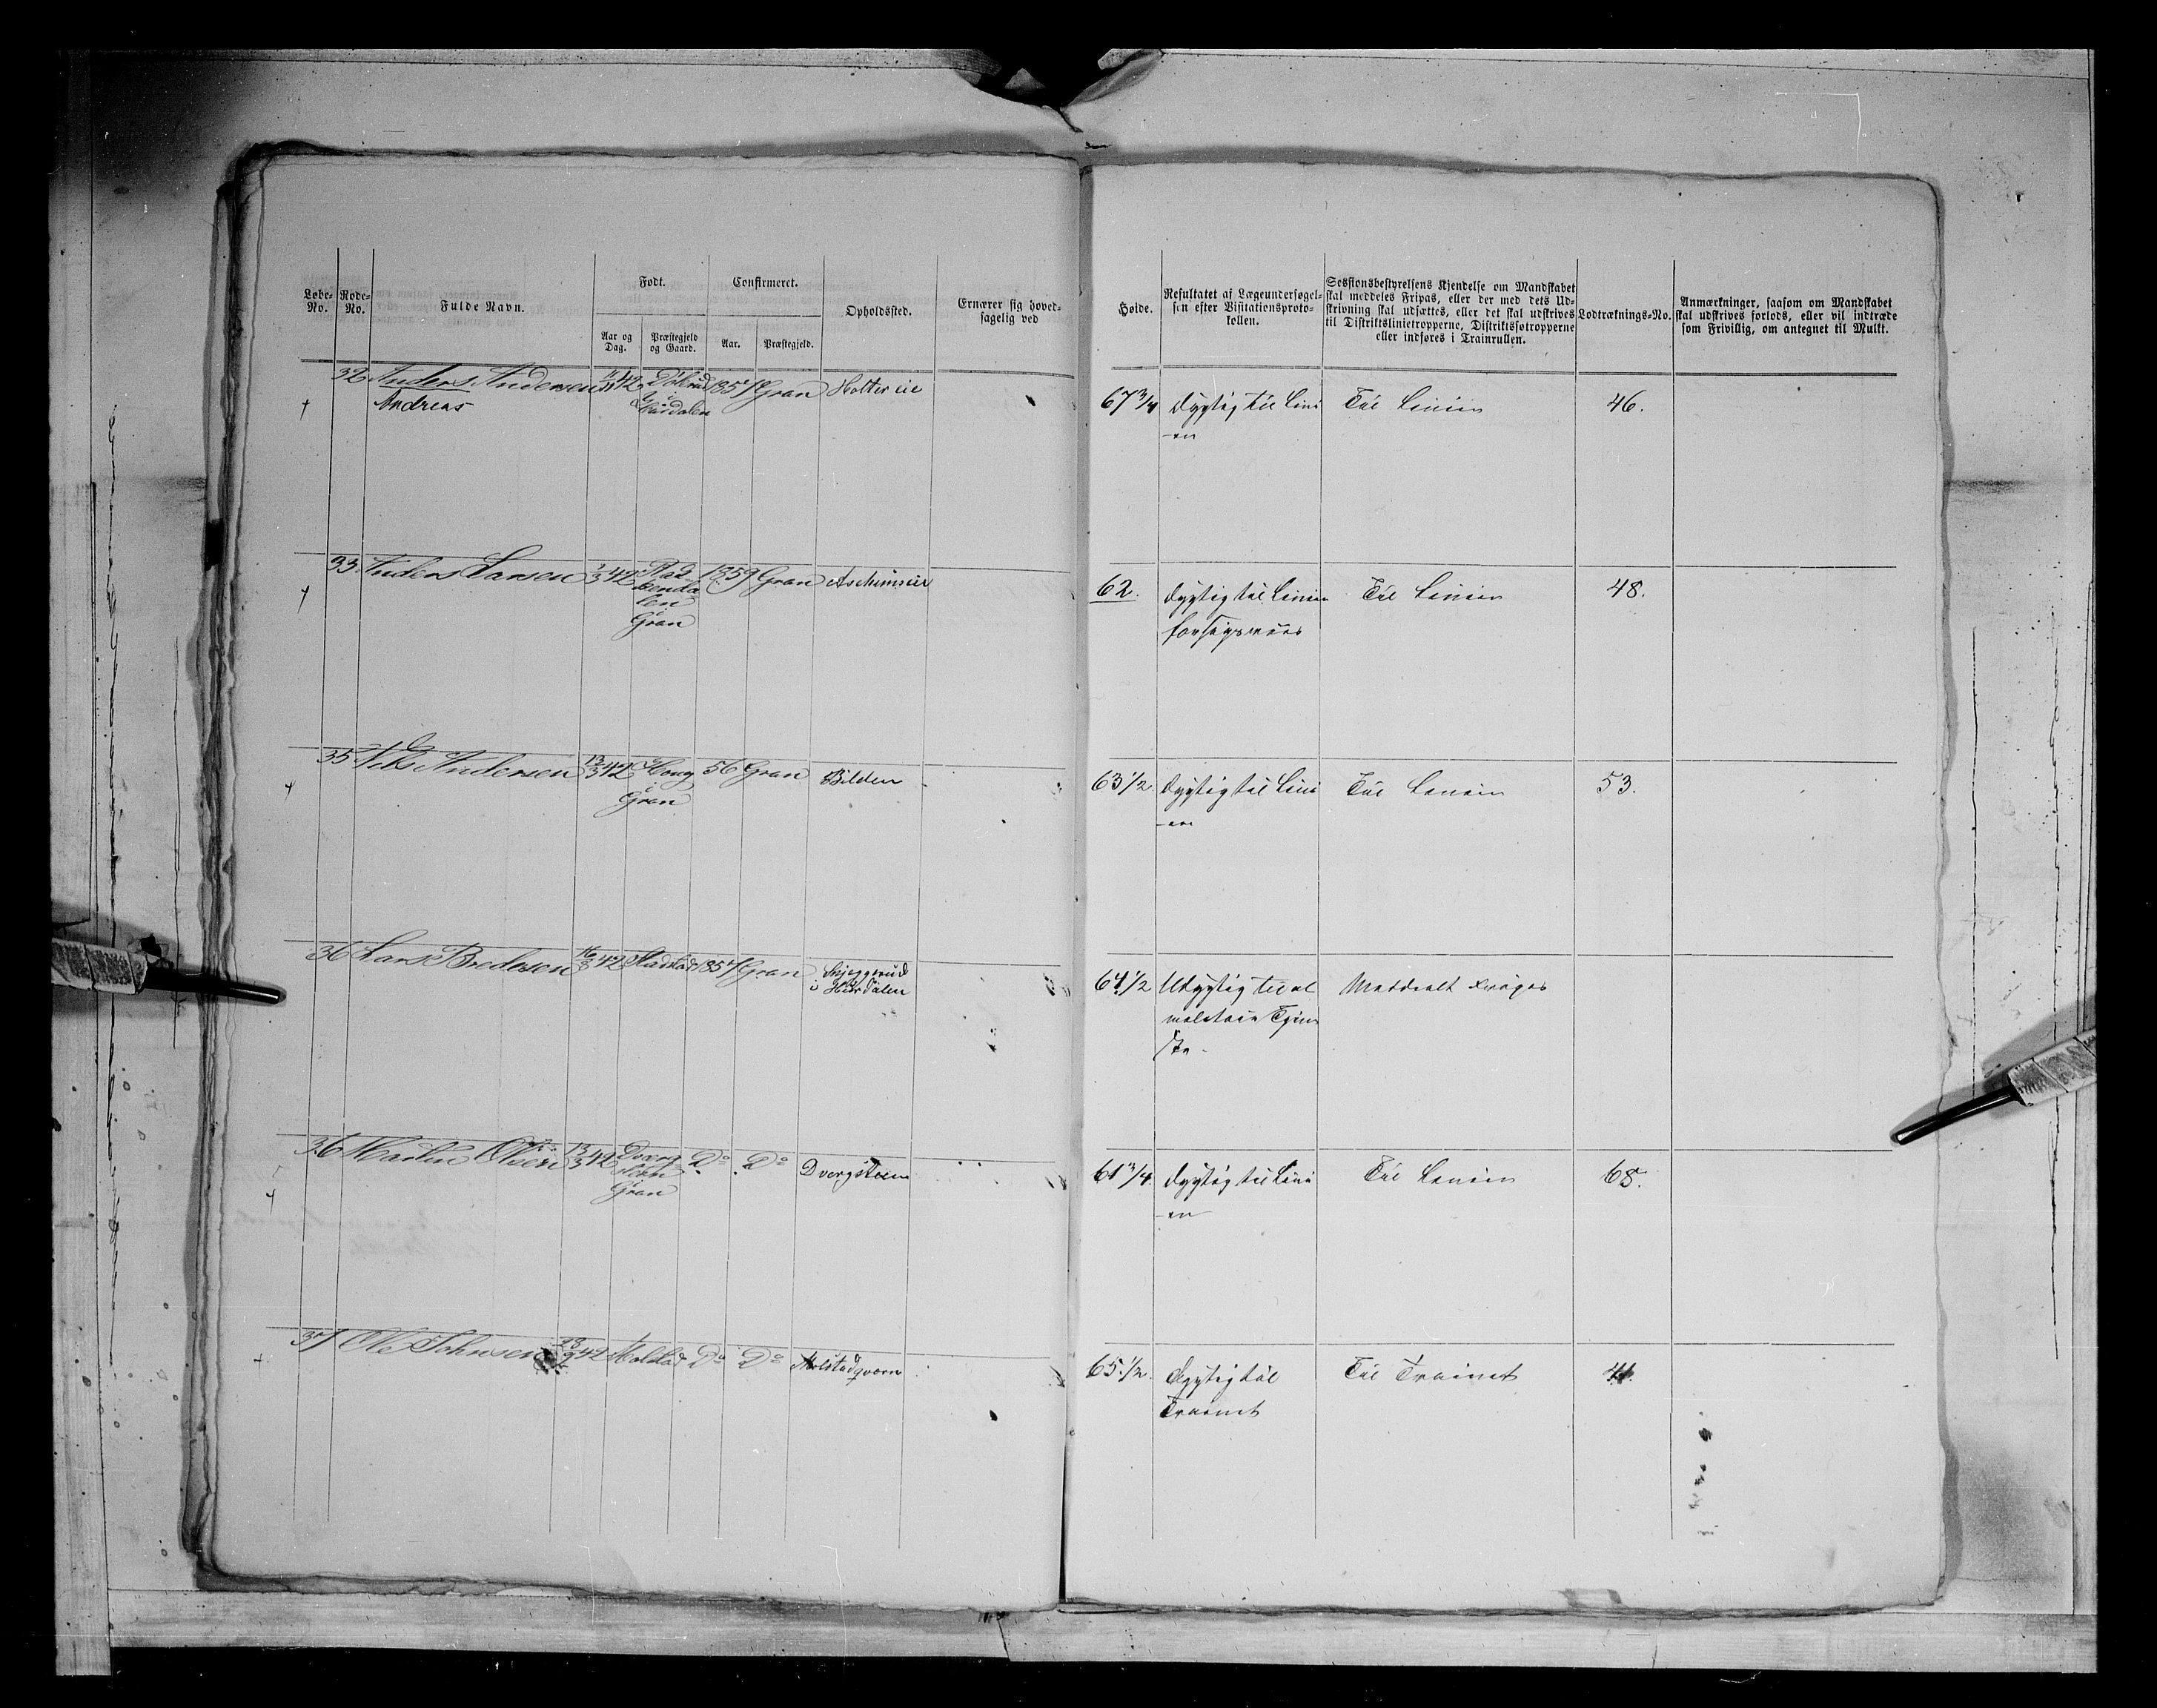 Løbe-No.
Rode-No.
Fulde Navn.
Født.
Aar og Dag.
Præstegjeld og Gaard.
Confirmeret.
Aar.
Præstegjeld.
Opholdssted.
Ernærer sig hoved-
sagelig ved
Høide.
Resultatet af Lægeundersøgel-
sen efter Visitationsproto-
kollen.
Sessionsbestyrelsens Kjendelse om Mandskabet
skal meddeles Fripas, eller der med dets Ud-
skrivning skal udsættes, eller det skal udskrives
til Distriktslinietropperne, Distriktssøtropperne
eller indføres i Trainrullen.
Lodtræknings-No.
Anmærkninger, saasom om Mandskabet
skal udskrives forlods, eller vil indtræde
som Frivillig, om antegnet til Mulkt.
32 Anders Andersen 42 1857 Gran Holter eie
Andreas
i Hurdalen
67 3/4 Dygtig til Lini
-en
Til Linien
46.
33 Anders Larsen 1/3 42 1859 Gran Aschimseie
i
Gran
62. Dygtig til Linien
Til Linien
48.
35 Nils Andersen 42 Houg 56 Gran Bilden
i
Gran
63 1/2. Dygtig til Lini
-en
Til Linien
53.
36 Lars Bredesen 42 1857 Gran Skjeggerud
i Hurdalen
64 1/2 Udygtig til al
militair Tjene
ste.
Meddeelt Fripas
36 Martin Olsen 13/3 42 Dverg- Do Do Dvergsteen
steen
i
Gran
61 3/4. Dygtig til Lini
-en
Til Linien
68.
37 Ole Johnsen 42 Molstad Do Do Molstadqvern
65 1/2. Dygtig til
Trainet
Til Trainet